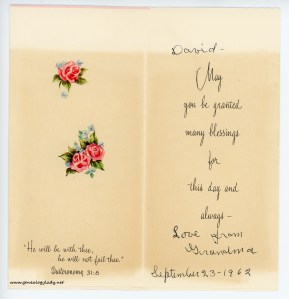 "He will be with thee,
he will not fail thee."
Deuteronomy 31:8
www.genealogylady.net
David-
May
you be granted
many blessings
for
this day and
always-
Love from
Grandma
September 23-1962